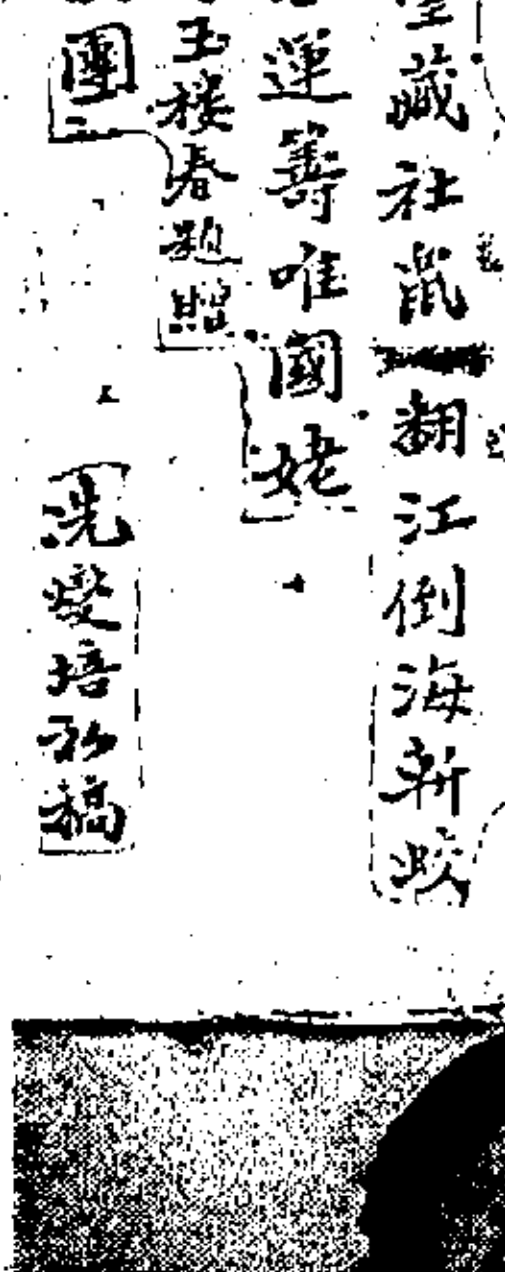 藏社鼠翻江倒海斬蛟
運籌唯國姥
玉樓春題贈
團
冼燮培初稿